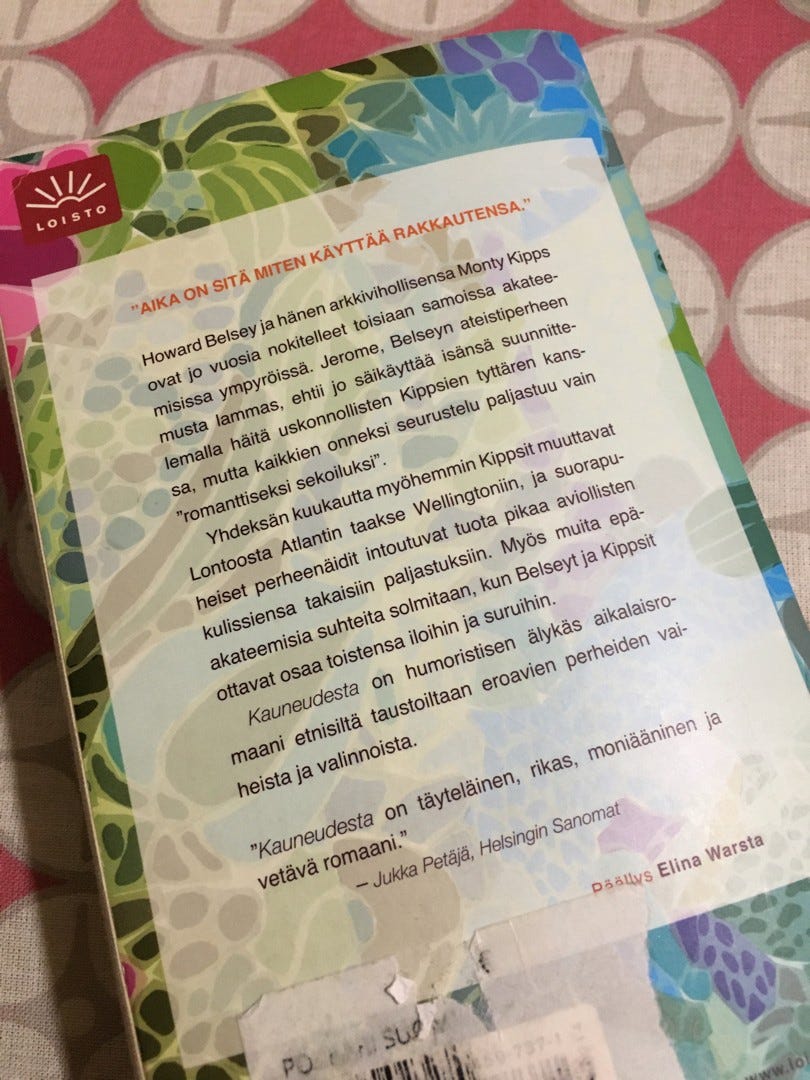 LOISTO
"AIKA ON SITÄ MITEN KÄYTTÄÄ RAKKAUTENSA."
Howard Belsey ja hänen arkkivihollisensa Monty Kipps
ovat jo vuosia nokitelleet toisiaan samoissa akatee-
misissa ympyröissä. Jerome, Belseyn ateistiperheen
musta lammas, ehtii jo säikäyttää isänsä suunnitte-
lemalla häitä uskonnollisten Kippsien tyttären kans-
sa, mutta kaikkien onneksi seurustelu paljastuu vain
"romanttiseksi sekoiluksi".
Yhdeksän kuukautta myöhemmin Kippsit muuttavat
Lontoosta Atlantin taakse Wellingtoniin, ja suorapu-
heiset perheenäidit intoutuvat tuota pikaa aviollisten
kulissiensa takaisiin paljastuksiin. Myös muita epä-
akateemisia suhteita solmitaan, kun Belseyt ja Kippsit
ottavat osaa toistensa iloihin ja suruihin.
Kauneudesta on humoristisen älykäs aikalaisro-
maani etnisiltä taustoiltaan eroavien perheiden vai-
heista ja valinnoista.
"Kauneudesta on täyteläinen, rikas, moniääninen ja
vetävä romaani."
– Jukka Petäjä, Helsingin Sanomat
Päällys Elina Warsta
€